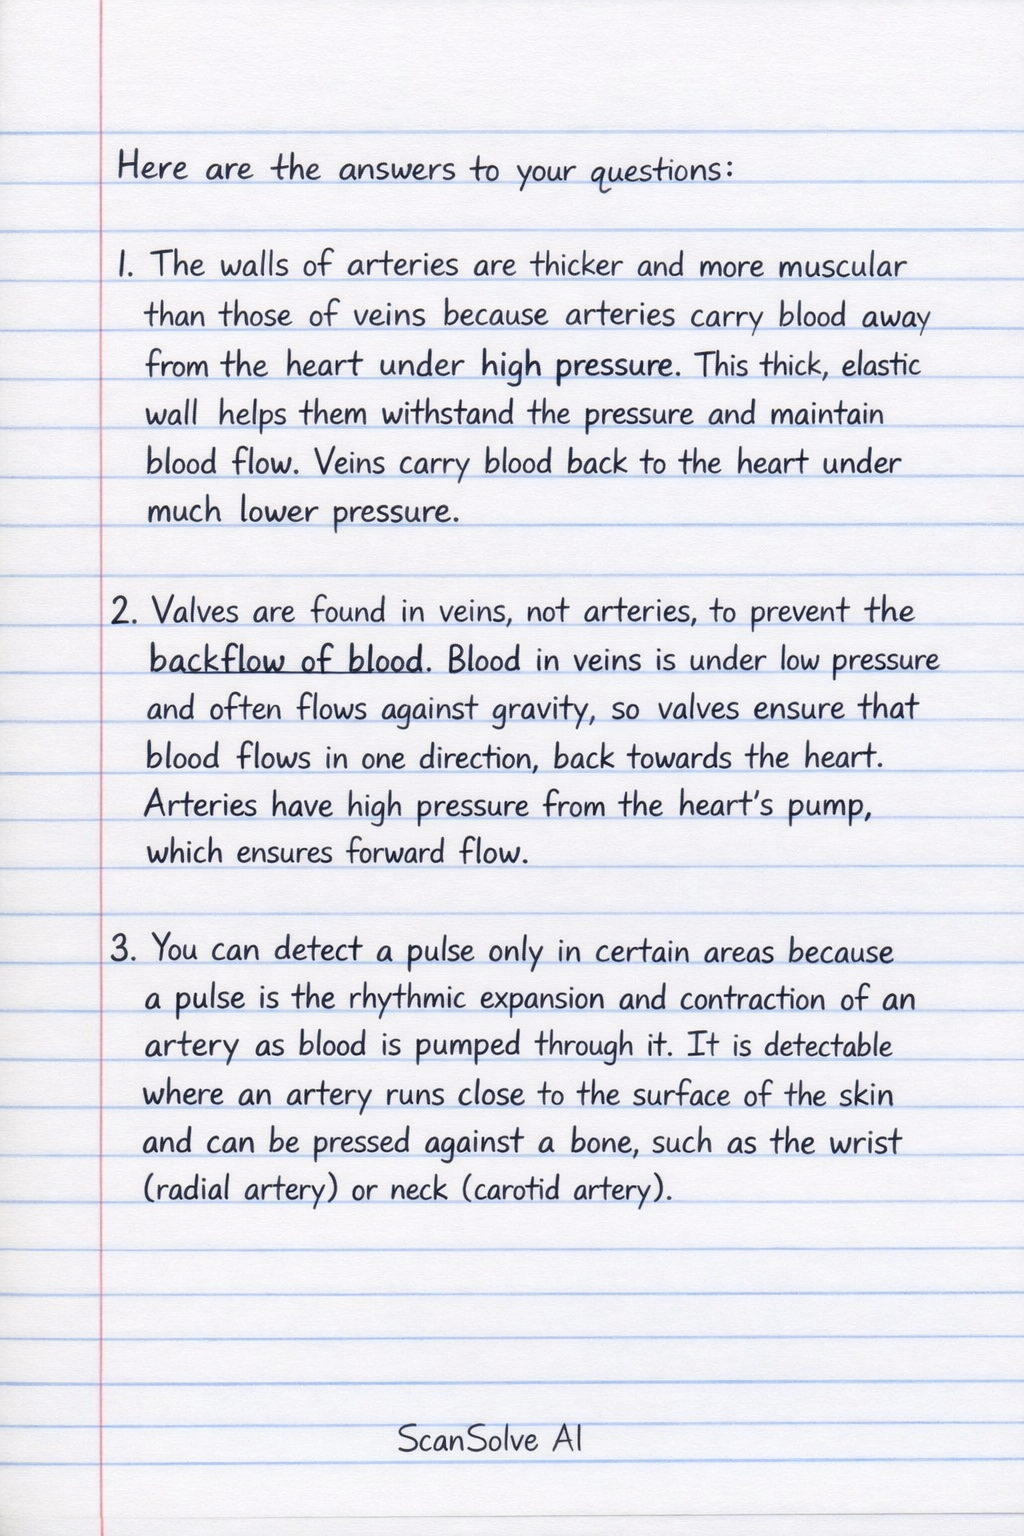 Here are the answers to your questions:
1. The walls of arteries are thicker and more muscular
than those of veins because arteries carry blood away
from the heart under high pressure. This thick, elastic
wall helps them withstand the pressure and maintain
blood flow. Veins carry blood back to the heart under
much lower pressure.
2. Valves are found in veins, not arteries, to prevent the
backflow of blood. Blood in veins is under low pressure
and often flows against gravity, so valves ensure that
blood flows in one direction, back towards the heart.
Arteries have high pressure from the heart's pump,
which ensures forward flow.
3. You can detect a pulse only in certain areas because
a pulse is the rhythmic expansion and contraction of an
artery as blood is pumped through it. It is detectable
where an artery runs close to the surface of the skin
and can be pressed against a bone, such as the wrist
(radial artery) or neck (carotid artery).
ScanSolve AI